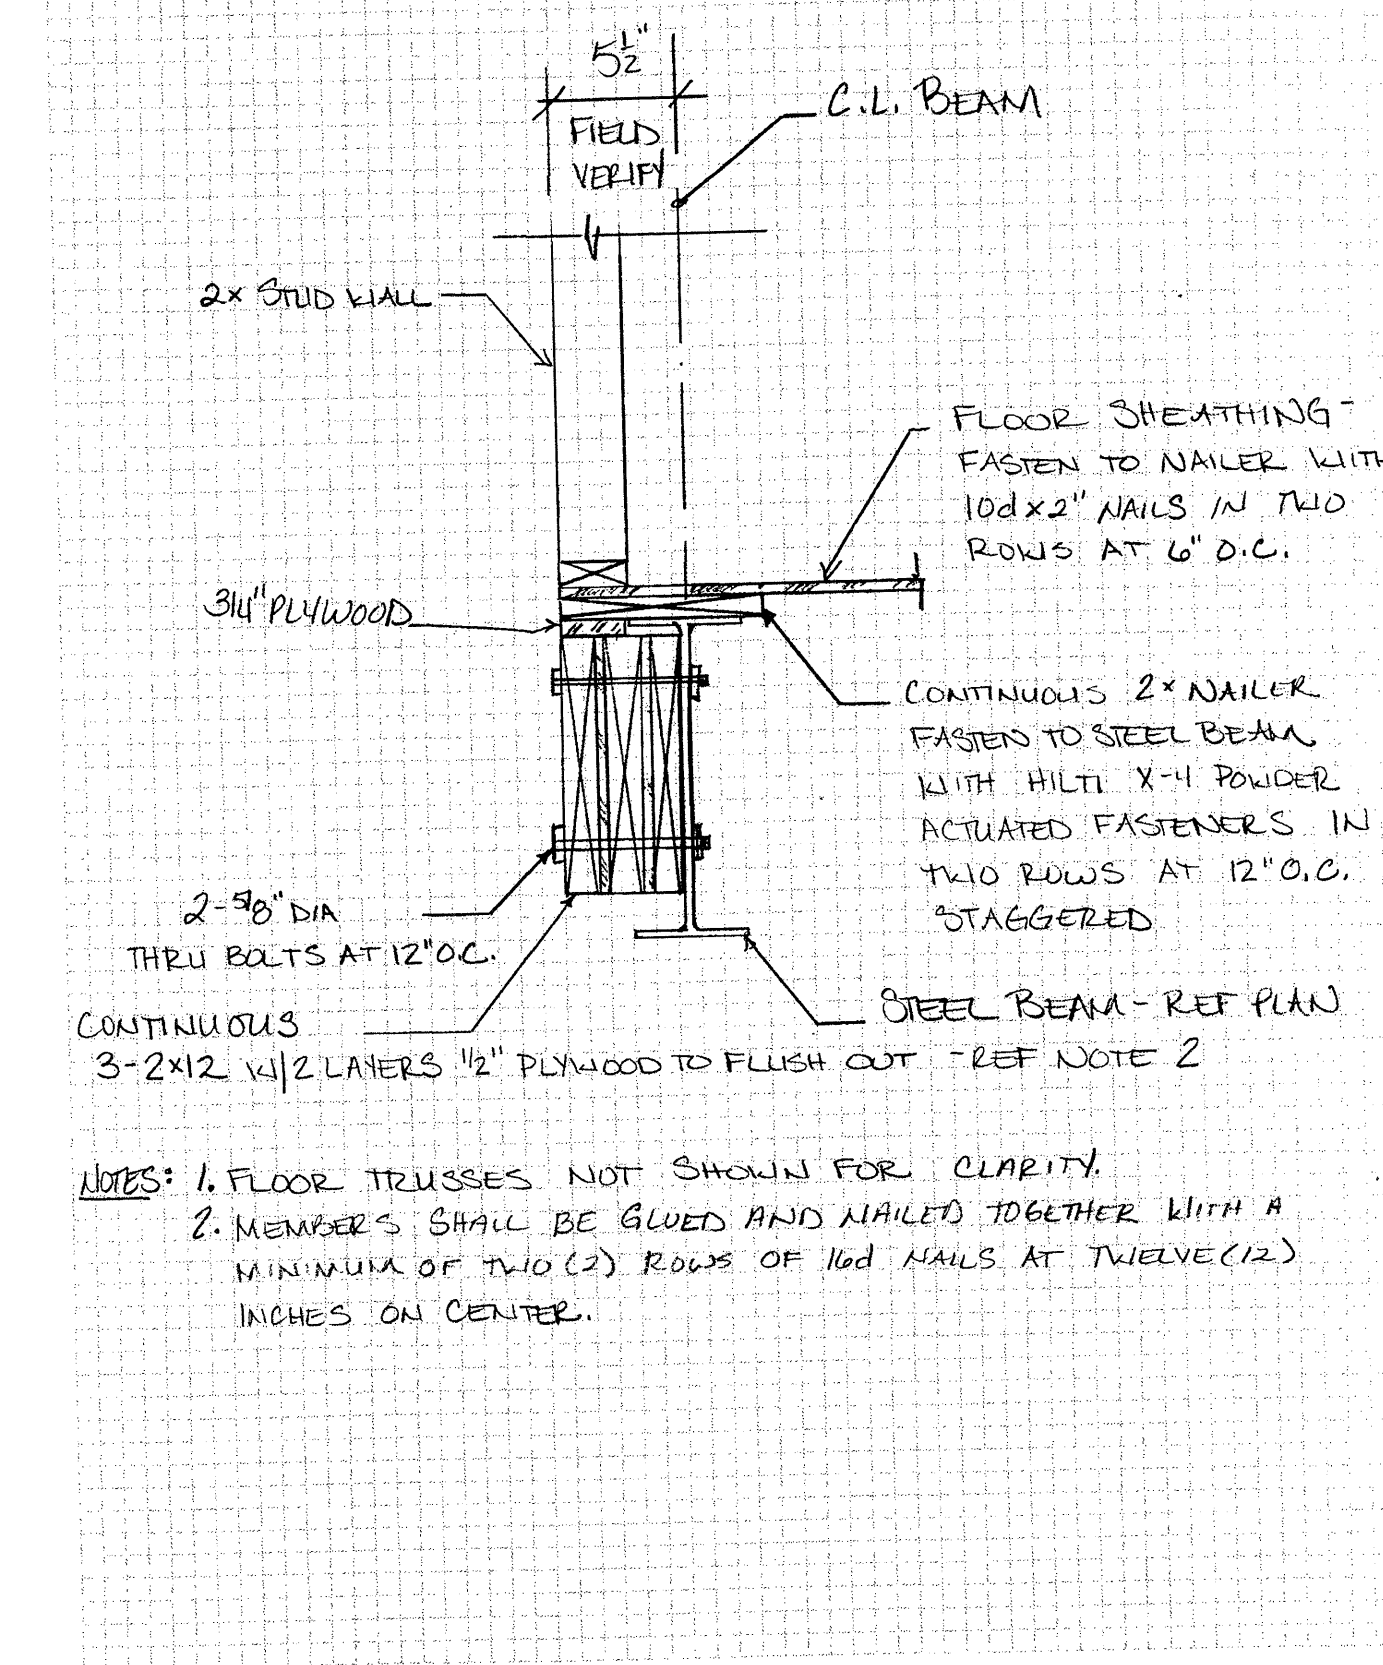 5 1/2"
FIELD
VERIFY
C.L. BEAM
2x STUD WALL
FLOOR SHEATHING -
FASTEN TO NAILER WITH
10d x 2" NAILS IN TWO
ROWS AT 6" O.C.
3/4" PLYWOOD
CONTINUOUS 2x NAILER
FASTEN TO STEEL BEAM
WITH HILTI X-4 POWDER
ACTUATED FASTENERS IN
TWO ROWS AT 12" O.C.
STAGGERED
2-5/8" DIA
THRU BOLTS AT 12" O.C.
STEEL BEAM - REF PLAN
CONTINUOUS
3-2x12 W/2 LAYERS 1/2" PLYWOOD TO FLUSH OUT - REF NOTE 2
NOTES: 1. FLOOR TRUSSES NOT SHOWN FOR CLARITY.
2. MEMBERS SHALL BE GLUED AND NAILED TOGETHER WITH A
MINIMUM OF TWO (2) ROWS OF 16d NAILS AT TWELVE (12)
INCHES ON CENTER.